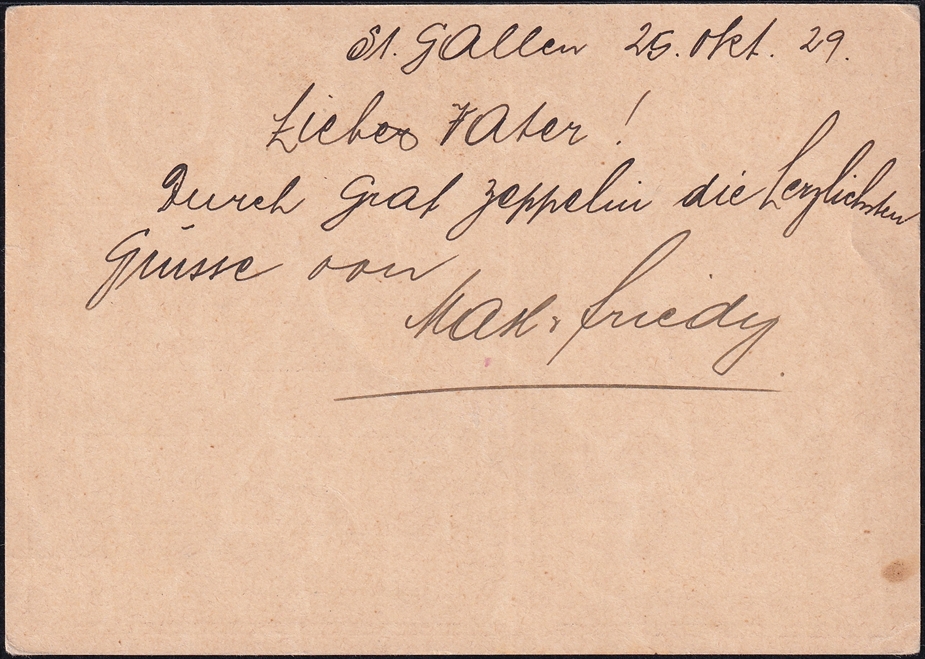 St. Gallen 25. Okt. 29.
Lieber Vater!
Durch Graf Zeppelin die herzlichsten
Grüsse von
Max & Friedy.